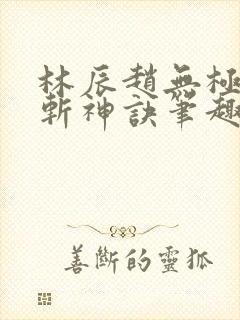 林辰趙無極
斬神訣筆趣
善斷的靈狐